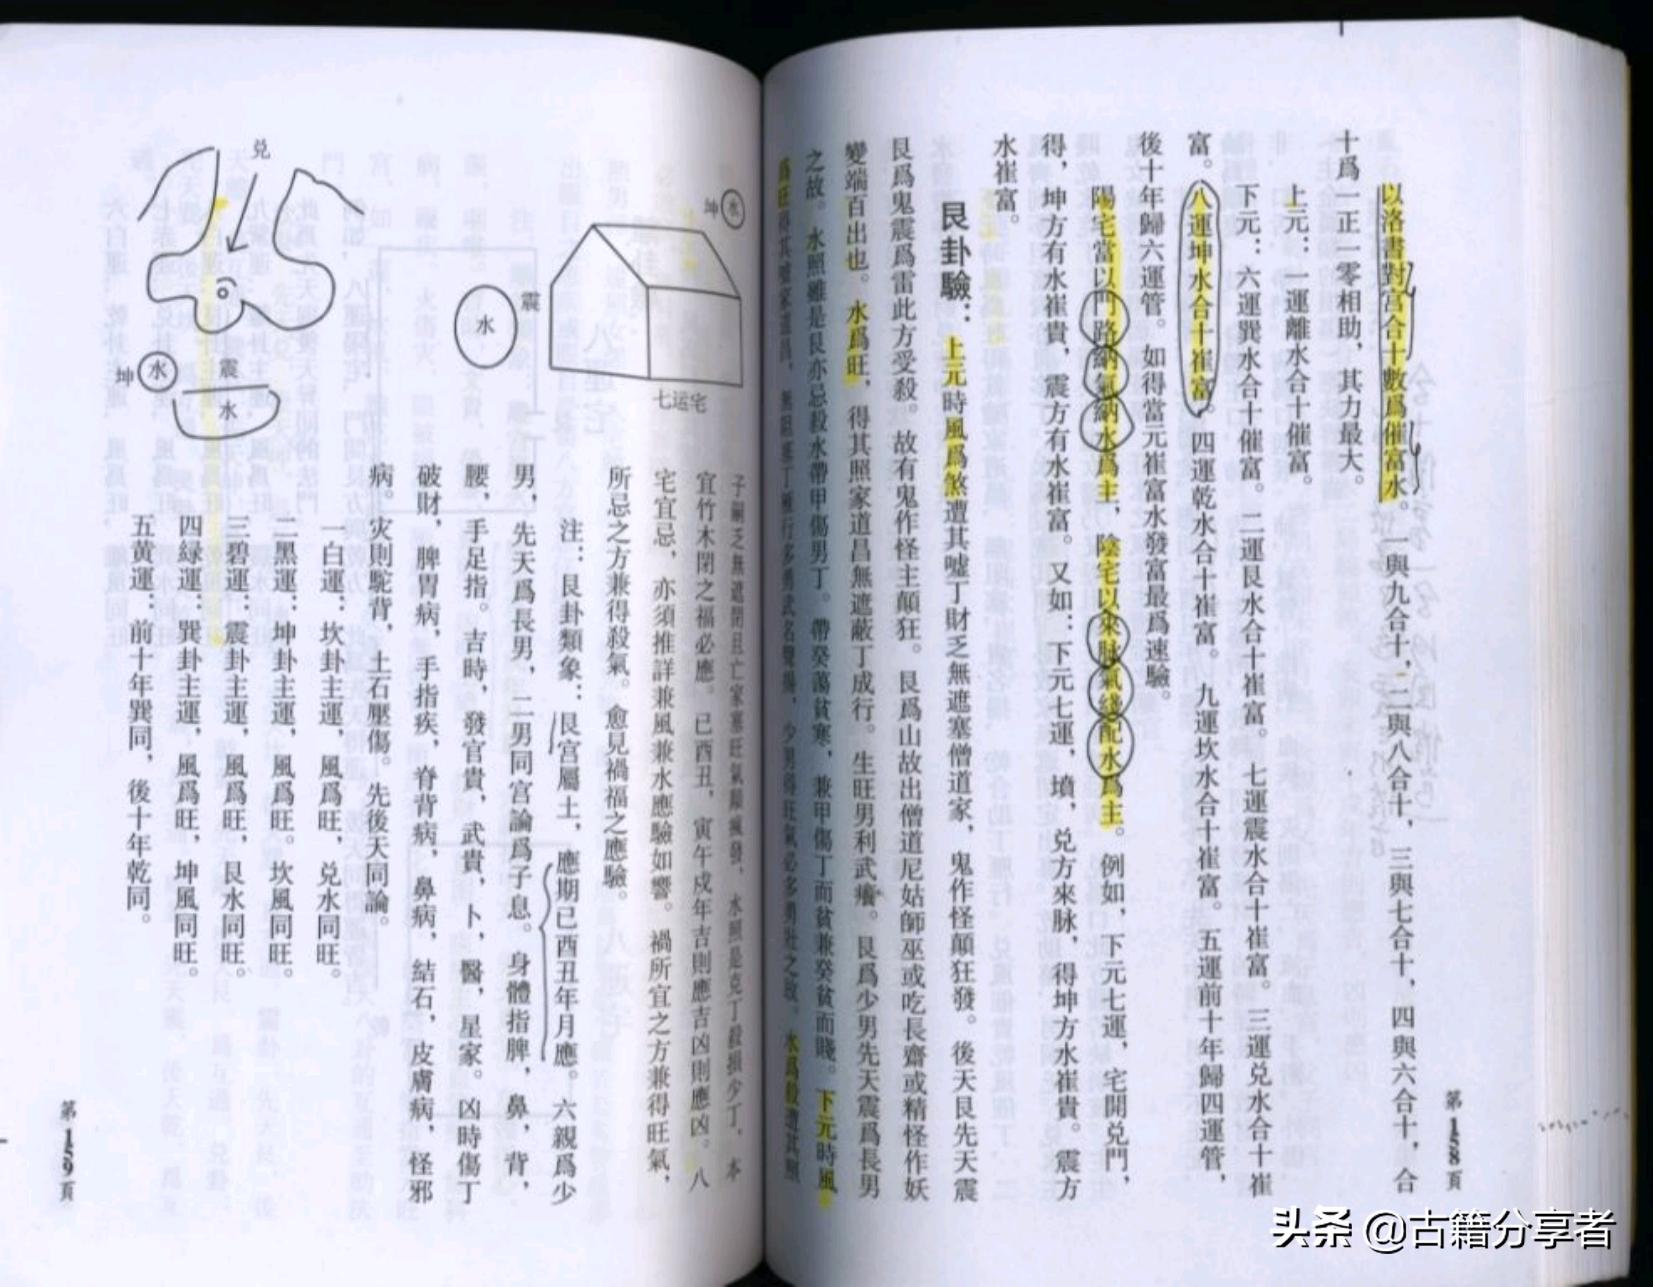 以洛書對宮合十數爲催富水。一與九合十，二與八合十，三與七合十，四與六合十，合
十爲一正一零相助，其力最大。
上元：一運離水合十催富。
下元：六運巽水合十催富。二運艮水合十崔富。七運震水合十崔富。三運兌水合十崔
富。八運坤水合十崔富。四運乾水合十崔富。九運坎水合十崔富。五運前十年歸四運管，
後十年歸六運管。如得當元崔富水發富最爲速驗。
陽宅當以門路納氣納水爲主，陰宅以來脉氣綫配水爲主。例如，下元七運，宅開兌門，
得，坤方有水崔貴，震方有水崔富。又如：下元七運，墳，兌方來脉，得坤方水崔貴。震方
水崔富。
艮卦驗：上元時風爲煞遭其噓丁財乏無遮塞僧道家，鬼作怪顛狂發。後天艮先天震
艮爲鬼震爲雷此方受殺。故有鬼作怪主顛狂。艮爲山故出僧道尼姑師巫或吃長齋或精怪作妖
變端百出也。水爲旺，得其照家道昌無遮蔽丁成行。生旺男利武癢。艮爲少男先天震爲長男
之故。水照雖是艮亦忌殺水帶甲傷男丁。帶癸蕩貧寒，兼甲傷丁而貧兼癸貧而賤。下元時風
爲旺得其噓家道昌，無阻塞丁極行多男武名聲揚，少男得旺氣必多男壯之故。水爲殺遭其照
子嗣乏無遮閉且亡家塞旺氣顛瘋發，水照是兌丁殺損少丁，本
宜竹木閉之福必應。已酉丑，寅午戍年吉則應吉凶則應凶。八
宅宜忌，亦須推詳兼風兼水應驗如響。禍所宜之方兼得旺氣，
所忌之方兼得殺氣。愈見禍福之應驗。
坤 水
震
水
七运宅
注：艮卦類象：艮宮屬土，應期已酉丑年月應。六親爲少
男，先天爲長男，二男同宮論爲子息。身體指脾，鼻，背，
腰，手足指。吉時，發官貴，武貴，卜，醫，星家。凶時傷丁
破財，脾胃病，手指疾，脊背病，鼻病，結石，皮膚病，怪邪
病。灾則駝背，土石壓傷。先後天同論。
一白運：坎卦主運，風爲旺，兌水同旺。
二黑運：坤卦主運，風爲旺。坎風同旺。
三碧運：震卦主運，風爲旺，艮水同旺。
四緑運：巽卦主運，風爲旺，坤風同旺。
五黄運：前十年巽同，後十年乾同。
兌
坤 水
震
水
第158頁
第159頁
头条 @古籍分享者